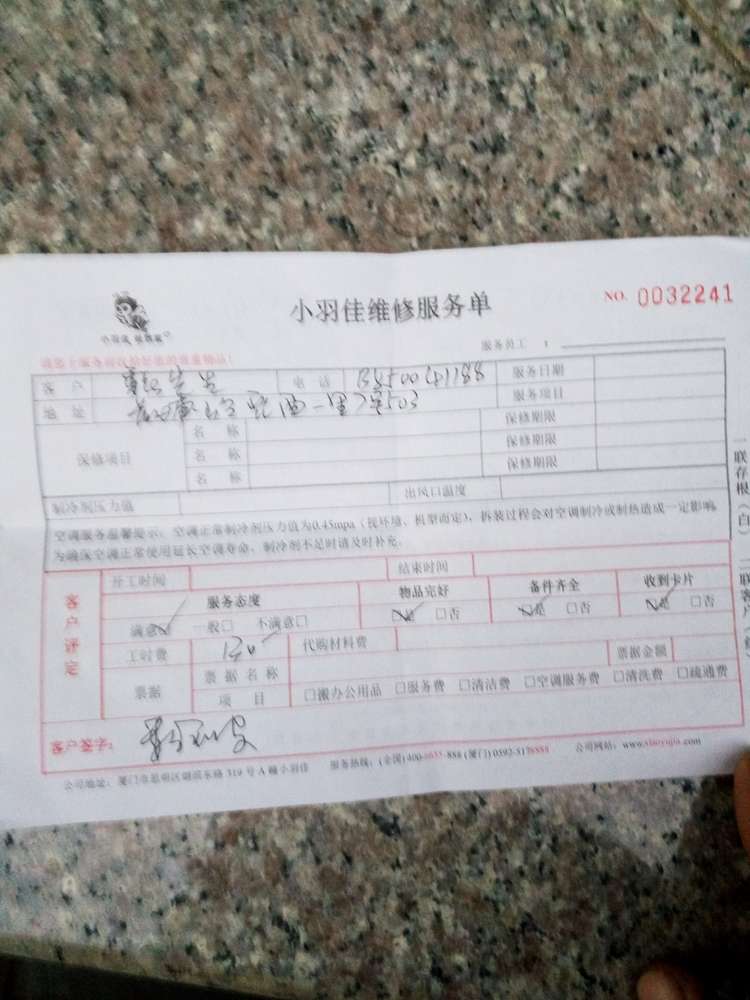 小羽佳维修服务单
NO. 0032241
服务员工：
客户 先生 电话 服务日期
地址 503 服务项目
保修项目 名称 保修期限
名称 保修期限
名称 保修期限
制冷剂压力值 出风口温度
空调服务温馨提示：空调正常制冷剂压力值为0.45mpa（视环境、机型而定），拆装过程会对空调制冷或制热造成一定影响，
为确保空调正常使用延长空调寿命，制冷剂不足时请及时补充。
客户评定
开工时间 结束时间
服务态度 物品完好 备件齐全 收到卡片
满意☑ 一般□ 不满意□ ☑是 □否 ☑是 □否 ☑是 □否
工时费 代购材料费
票据 票据名称 票据金额
项目 □搬办公用品 □服务费 □清洁费 □空调服务费 □清洗费 □疏通费
客户签字：
公司地址：厦门市思明区湖滨东路319号A幢小羽佳 服务热线：(全国)400-6655-888 (厦门)0592-5178888 公司网站：www.xiaoyujia.com
一联存根（白）